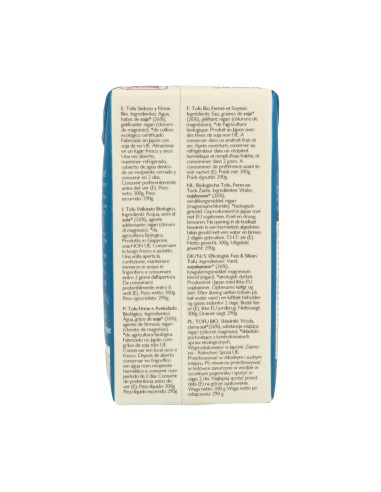 E: Tofu Sedoso y Firme
Bio. Ingredientes: Agua,
habas de soja* (26%),
gelificante: nigari (cloruro
de magnesio). *de cultivo
ecológico certificado.
Fabricado en Japón con
soja de no UE. Almacenar
en un lugar fresco y seco.
Una vez abierto,
mantener refrigerado,
cubierto de agua dentro
de un recipiente cerrado y
consumir en 2 días.
Consumir preferentemente
antes del ver (E). Peso
neto: 300g. Peso
escurrido: 290g.
I: Tofu Vellutato Biologico.
Ingredienti: Acqua, semi di
soia* (26%), agente
addensante nigari (cloruro
di magnesio). *da
agricoltura biologica.
Prodotto in Giappone,
soia NON UE. Conservare
in luogo fresco e asciutto.
Una volta aperta la
confezione, mantenere
immerso in acqua in
frigorifero e consumare
entro 2 giorni dall'apertura.
Da consumarsi
preferibilmente entro il
vedi (E). Peso netto: 300g.
Peso sgocciolato: 290g.
P: Tofu Firme e Aveludado
Biológico. Ingredientes:
Água, grãos de soja* (26%),
agente de firmeza: nigari
(cloreto de magnésio).
*de agricultura biológica.
Fabricado no Japão com
grãos de soja não UE.
Conservar em local seco e
fresco. Depois de aberto
conservar no frigorífico
em água num recipiente
hermético e consumir num
período de 2 dias. Consumir
de preferência antes de
ver (E). Peso líquido: 300g.
Peso líquido escorrido: 290g.
F: Tofu Bio Ferme et Soyeux.
Ingrédients: Eau, graines de soja*
(26%), gélifiant: nigari (chlorure de
magnésium). *de l'agriculture
biologique. Produit au Japon avec
des fèves de soja non UE. A
conserver dans un endroit frais et
sec. Après ouverture, conserver au
réfrigérateur dans un récipient
hermétique et rempli d'eau fraîche, et
consommer dans les 2 jours. A
consommer de préférence avant le:
voir cachet (E). Poids net: 300g.
Poids égoutté: 290g.
NL: Biologische Tofu, Ferm en
Toch Zacht. Ingrediënten: Water,
sojabonen* (26%),
verdikkingsmiddel: nigari
(magnesiumchloride). *biologisch
geteeld. Geproduceerd in Japan met
niet EU sojabonen. Koel en droog
bewaren. Na opening in de koelkast
bewaren in een hermetisch afgesloten
bakje gevuld met vers water en binnen
2 dagen gebruiken. T.H.T: zie (E).
Netto gewicht: 300g. Uitgelekt
gewicht: 290g.
DK/N/S: Økologisk Fast & Silken
Tofu. Ingredienser: Vand,
sojabønner* (26%),
koaguleringsmiddel: magnesium
klorid (nigari). *økologisk dyrket.
Produceret i Japan med ikke EU
sojabønner. Opbevares køligt og
tørt. Efter åbning sættes tofuen på
køl under vand i en lufttæt beholder
og spises indenfor 2 dage. Bedst før:
se (E). Ikke EU (jordbrug). Nettovægt:
300g. Drænet vægt: 290g.
PL: TOFU BIO. Składniki: Woda,
ziarna soi* (26%), substancja wiążąca:
nigari (chlorek magnezu). *składniki
pochodzące z kontrolowanych
upraw ekologicznych.
Wyprodukowano w Japonii. Ziarno
soi - Rolnictwo Spoza UE.
Przechowywać w chłodnym i suchym
miejscu. Po otwarciu przechowywać
w lodówce zanurzone w wodzie w
szczelnym pojemniku i spożyć w
ciągu 2 dni. Najlepiej spożyć przed:
data (E) na górze opakowania.
Waga netto: 300 g Waga netto po
odsączeniu: 290 g